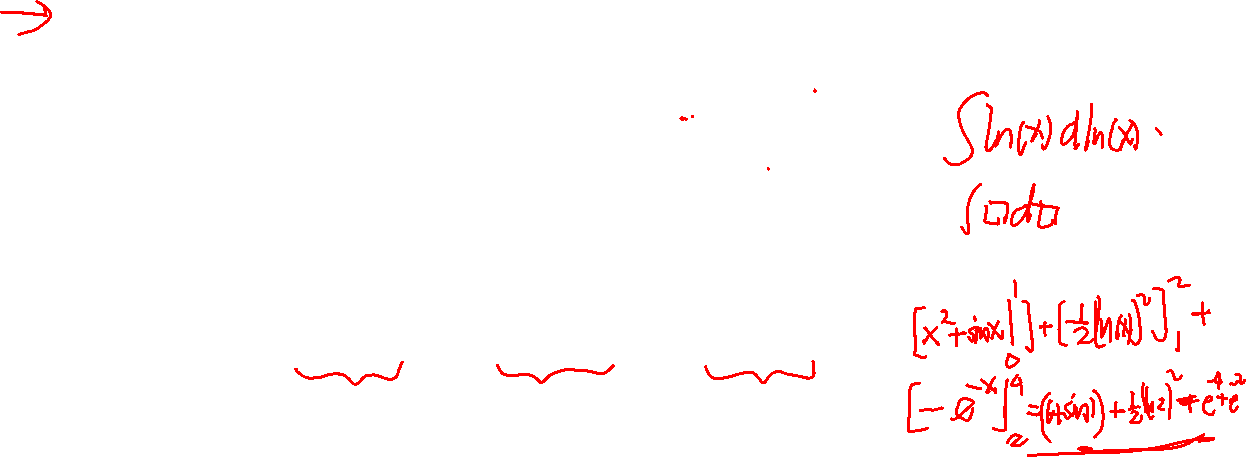 →
∫ln(x)dln(x).
∫□d□
[x²+sinx|₀¹]+[½(ln(x))²]₁²+
[-e⁻ˣ]₂⁴=(1+sin1)+½(ln2)²-e⁻⁴+e⁻²